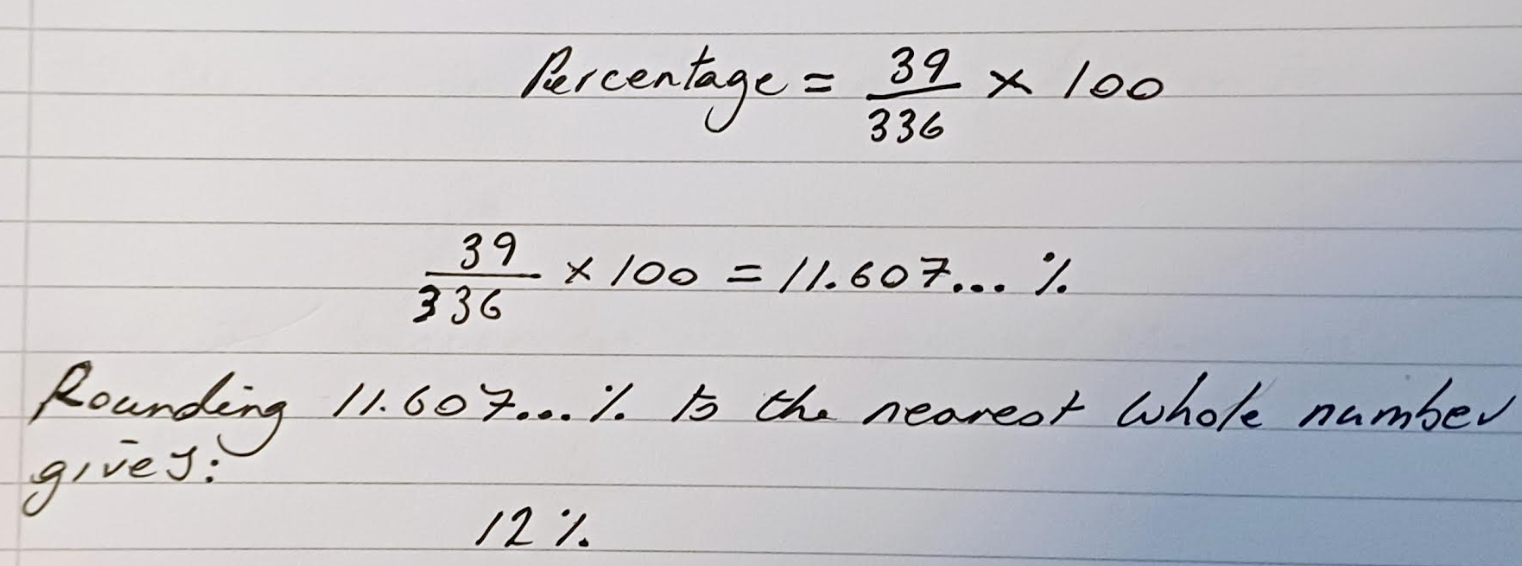 Percentage = 39/336 × 100
39/336 × 100 = 11.607... %
Rounding 11.607... % to the nearest whole number
gives:
12 %